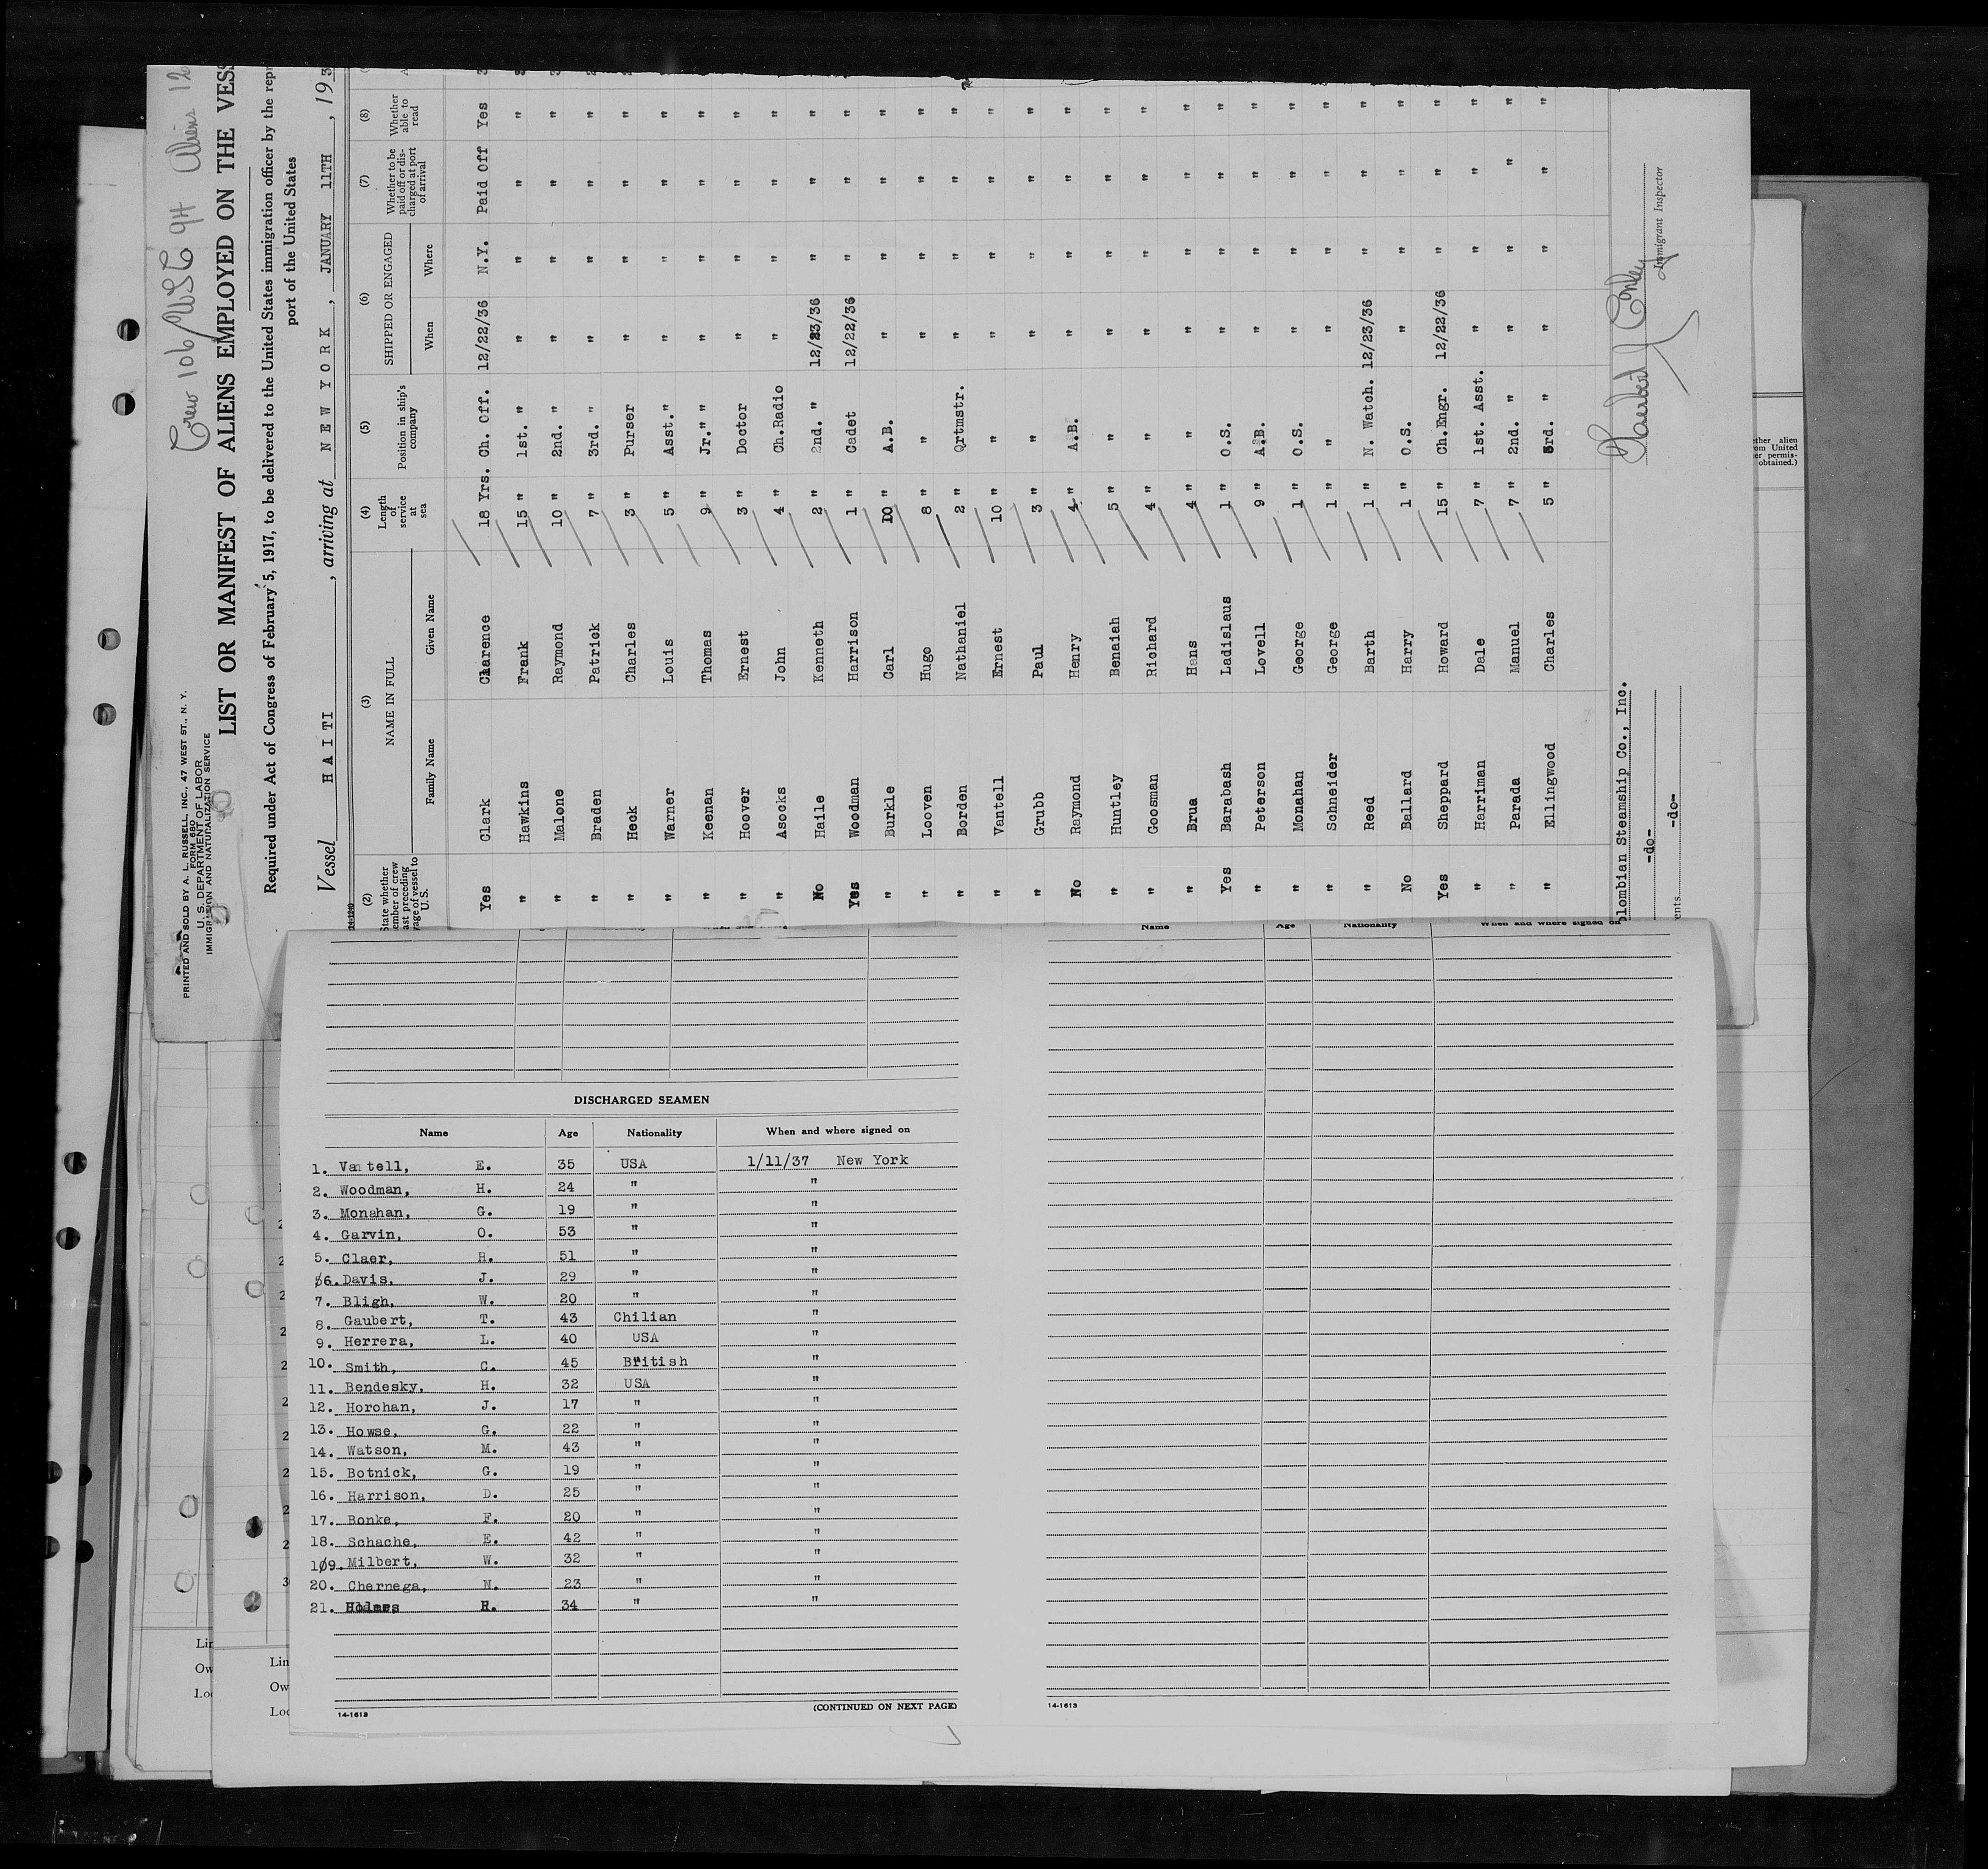 Crew 106 USC 94 Aliens 12
PRINTED AND SOLD BY A. L. RUSSELL, INC., 47 WEST ST., N. Y.
FORM 680
U. S. DEPARTMENT OF LABOR
IMMIGRATION AND NATURALIZATION SERVICE
LIST OR MANIFEST OF ALIENS EMPLOYED ON THE VESS
Required under Act of Congress of February 5, 1917, to be delivered to the United States immigration officer by the repr
port of the United States
Vessel HAITI, arriving at NEW YORK, JANUARY 11TH, 193
(2) (3) (4) (5) (6) (7) (8)
State whether member of crew last preceding voyage of vessel to U.S.
NAME IN FULL
Family Name Given Name
Length of service at sea
Position in ship's company
SHIPPED OR ENGAGED
When Where
Whether to be paid off or discharged at port of arrival
Whether able to read
Yes Clark Clarence 18 Yrs. Ch. Off. 12/22/36 N.Y. Paid Off Yes
" Hawkins Frank 15 " 1st. " " " " "
" Malone Raymond 10 " 2nd. " " " " "
" Braden Patrick 7 " 3rd. " " " " "
" Heck Charles 3 " Purser " " " "
" Warner Louis 5 " Asst. " " " " "
" Keenan Thomas 9 " Jr. " " " " " "
" Hoover Ernest 3 " Doctor " " " "
" Asocks John 4 " Ch.Radio " " " "
No Haile Kenneth 2 " 2nd. " 12/23/36 " " "
Yes Woodman Harrison 1 " Cadet 12/22/36 " " "
" Burkle Carl 10 " A.B. " " " "
" Looven Hugo 8 " " " " " "
" Borden Nathaniel 2 " Qrtmstr. " " " "
" Vantell Ernest 10 " " " " " "
" Grubb Paul 3 " " " " " "
No Raymond Henry 4 " A.B. " " " "
" Huntley Benaiah 5 " " " " " "
" Goosman Richard 4 " " " " " "
" Brua Hans 4 " " " " " "
Yes Barabash Ladislaus 1 " O.S. " " " "
" Peterson Lovell 9 " A.B. " " " "
" Monahan George 1 " O.S. " " " "
" Schneider George 1 " " " " " "
" Reed Barth 1 " N. Watch. 12/23/36 " " "
No Ballard Harry 1 " O.S. " " " "
Yes Sheppard Howard 15 " Ch.Engr. 12/22/36 " " "
" Harriman Dale 7 " 1st. Asst. " " " "
" Parada Manuel 7 " 2nd. " " " " "
" Ellingwood Charles 5 " 3rd. " " " " "
lombian Steamship Co., Inc.
-do-
-do-
ents
Immigrant Inspector
ether alien
rom United
er permis-
obtained.)
Name Age Nationality When and where signed on
DISCHARGED SEAMEN
Name Age Nationality When and where signed on
1. Vantell, E. 35 USA 1/11/37 New York
2. Woodman, H. 24 " "
3. Monahan, G. 19 " "
4. Garvin, O. 53 " "
5. Claer, H. 51 " "
6. Davis, J. 29 " "
7. Bligh, W. 20 " "
8. Gaubert, T. 43 Chilian "
9. Herrera, L. 40 USA "
10. Smith, C. 45 British "
11. Bendesky, H. 32 USA "
12. Horohan, J. 17 " "
13. Howse, G. 22 " "
14. Watson, M. 43 " "
15. Botnick, G. 19 " "
16. Harrison, D. 25 " "
17. Bonke, F. 20 " "
18. Schache, E. 42 " "
19. Milbert, W. 32 " "
20. Chernega, N. 23 " "
21. Holmes R. 34 " "
14-1613
(CONTINUED ON NEXT PAGE)
14-1613
Lin
Ow
Loc
Lin
Ow
Loc